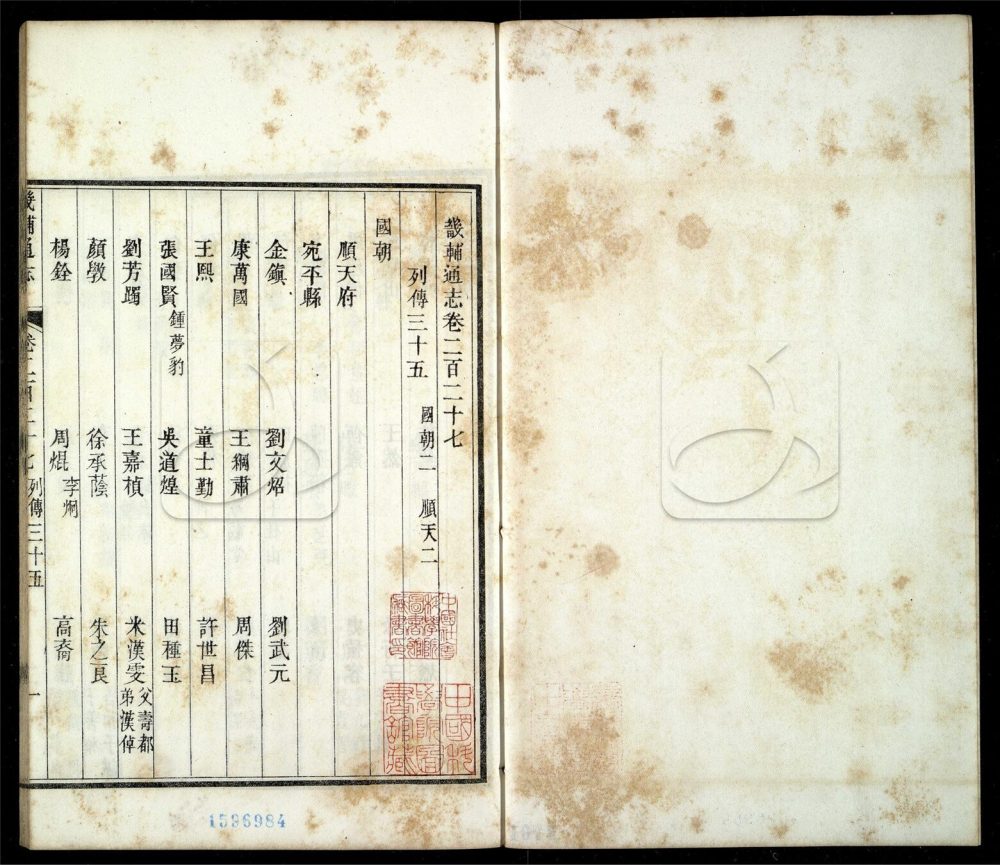 畿輔通志卷二百二十七
列傳三十五 國朝二 順天二
國朝
順天府
宛平縣
金鎮 劉文炤 劉武元
康萬國 王綱肅 周傑
王熙 童士勤 許世昌
張國賢 鍾夢豹 吳道煌 田種玉
劉芳躅 王嘉楨 米漢雯 父壽都 弟漢倬
顏敩 徐承蔭 朱之
楊銓 周焜 李炯 高裔
畿輔通志 列傳三十五 一
中國科學院圖書館藏
1596984